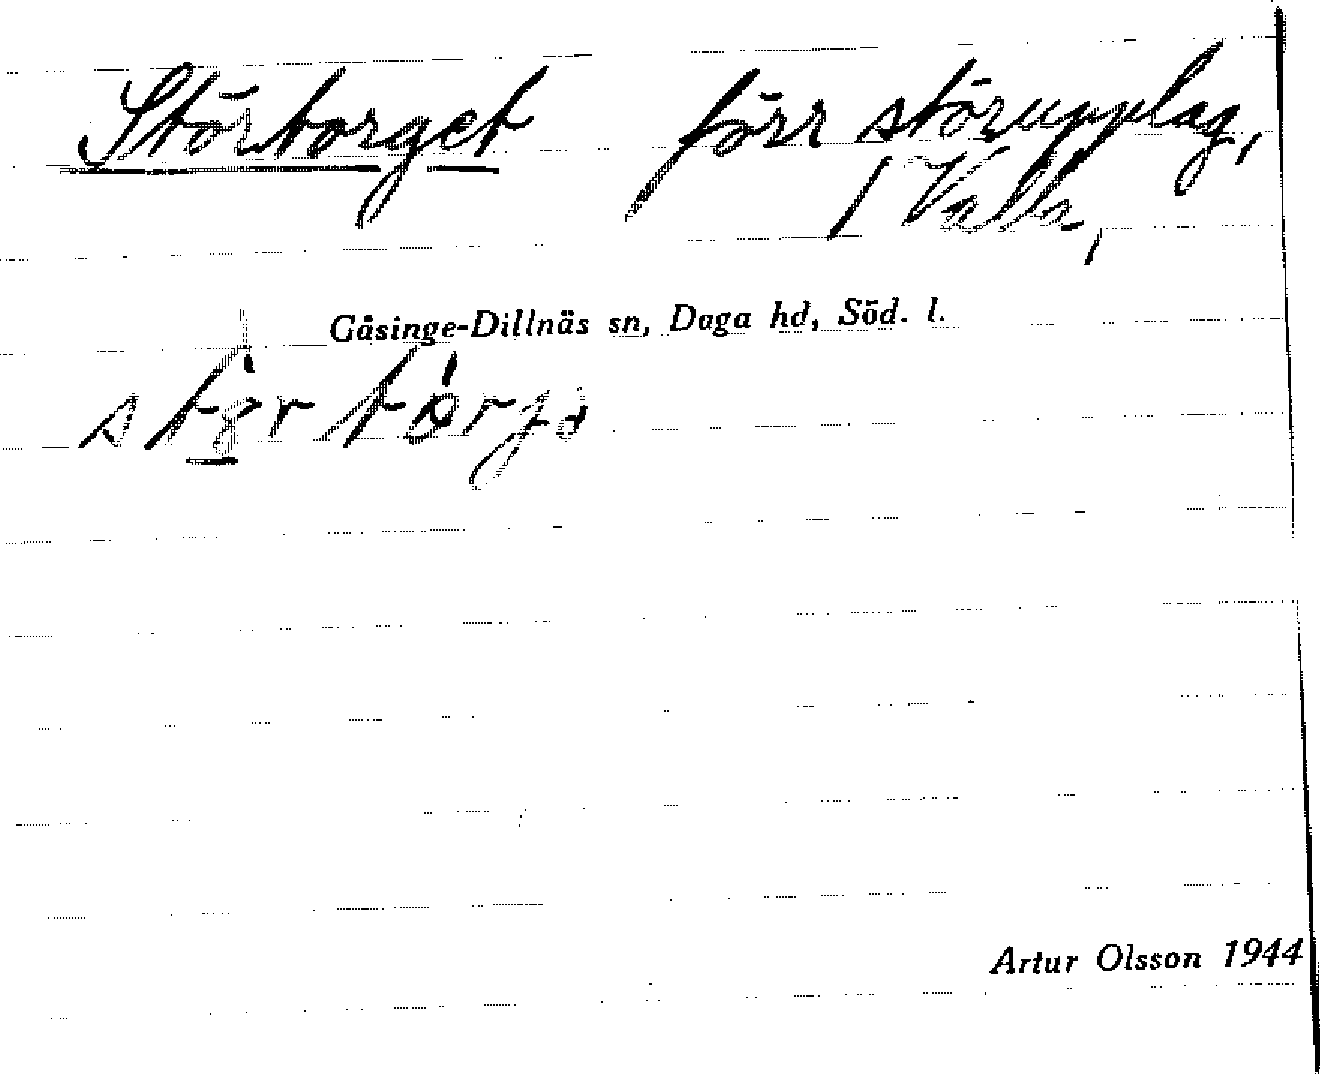 Störtorget förr störupplag,
/ Valla,
Gåsinge-Dillnäs sn, Daga hd, Söd. l.
Artur Olsson 1944